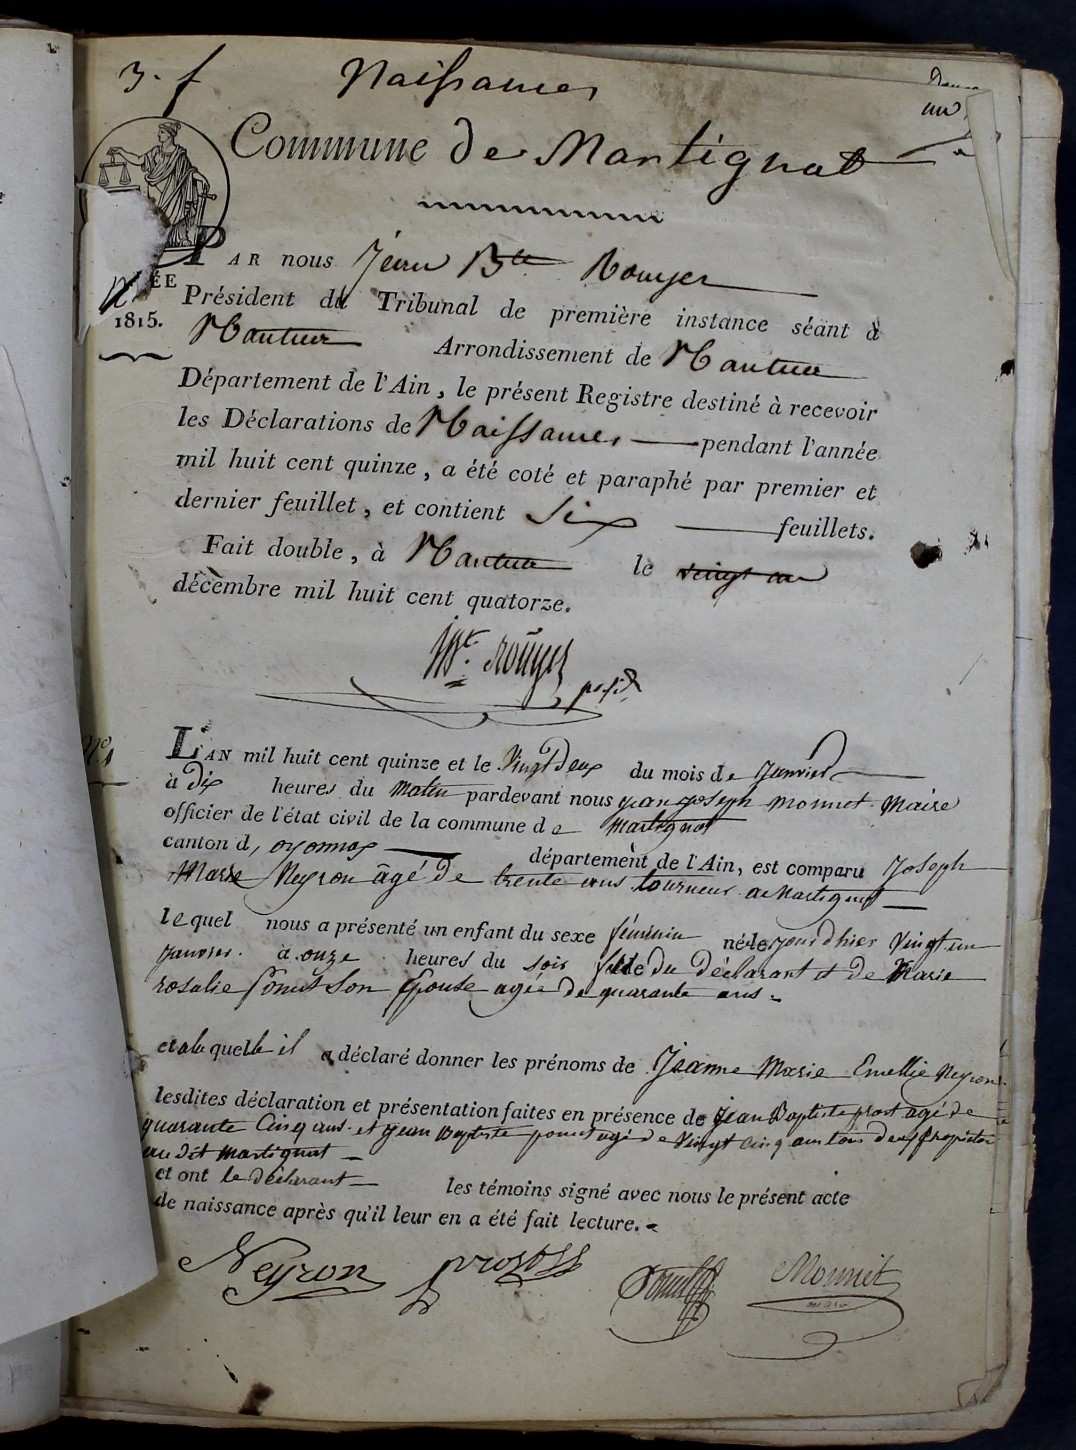 3. f Naissances
un
Commune de Martignat
PAR nous Jean Bte Rouyer
ÉE
Président du Tribunal de première instance séant à
1815.
Nantua Arrondissement de Nantua
Département de l'Ain, le présent Registre destiné à recevoir
les Déclarations de Naissances pendant l'année
mil huit cent quinze, a été coté et paraphé par premier et
dernier feuillet, et contient Six feuillets.
Fait double, à Nantua le vingt un
décèmbre mil huit cent quatorze.
Bte. Rouyer
presidt
No 1
L'AN mil huit cent quinze et le Vingt deux du mois de Janvier
à dix heures du matin pardevant nous jean joseph monnet maire
officier de l'état civil de la commune de Martignat
canton d, oyonnax département de l'Ain, est comparu Joseph
Marie Neyron âgé de trente ans tourneur a Martignat
lequel nous a présenté un enfant du sexe féminin né le jour d'hier Vingt un
janvier à onze heures du soir fille du déclarant et de Marie
rosalie Son Epouse agée de quarante ans
et a la quelle il a déclaré donner les prénoms de Jeanne Marie Emellie Neyron
lesdites déclaration et présentation faites en présence de jean Baptiste prost agé de
quarante Cinq ans et jean Baptiste agé de Vingt cinq ans tous deux Propriétaire
au dit martignat
et ont le déclarant les témoins signé avec nous le présent acte
de naissance après qu'il leur en a été fait lecture.
Neyron prost Monnet
maire